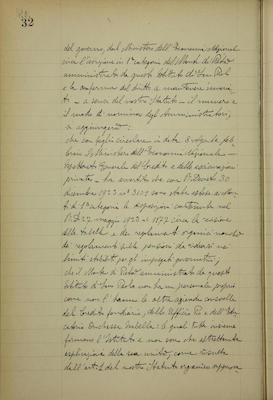 32
del governo, dal Ministero dell'Economia Nazionale
circa l'iscrizione in 1ª categoria del Monte di Pietà
amministrato da questo Istituto di San Paolo
e la conferma del diritto a mantenere invaria-
to - a senso del nostro Statuto - il numero e
il modo di nomina degli Amministratori,
si aggiungerà:
che con foglio circolare in data 8
il Ministero dell'Economia Nazionale -
Ispettorato Generale del Credito e delle assicurazioni
private - ha avvertito che con R. Decreto 30
dicembre 1923 nº sono state estese ai Mon-
ti di 1ª categoria le disposizioni contenute nel
R. D. 27 maggio 1923 nº 1177 circa la revisione
delle tabelle e dei regolamenti organici nonché
dei regolamenti sulle pensioni da ridursi nei
limiti stabiliti per gli impiegati governativi;
che il Monte di Pietà amministrato da questo
Istituto di San Paolo non ha un personale proprio
come non l'hanno le altre aziende consorelle
del Credito fondiario, dello Ufficio Pio e dell'Edu-
catorio Duchessa Isabella: le quali tutte insieme
formano l'Istituto e non sono che altrettante
esplicazioni della sua unità, come risulta
dall'art. 1 del nostro Statuto organico